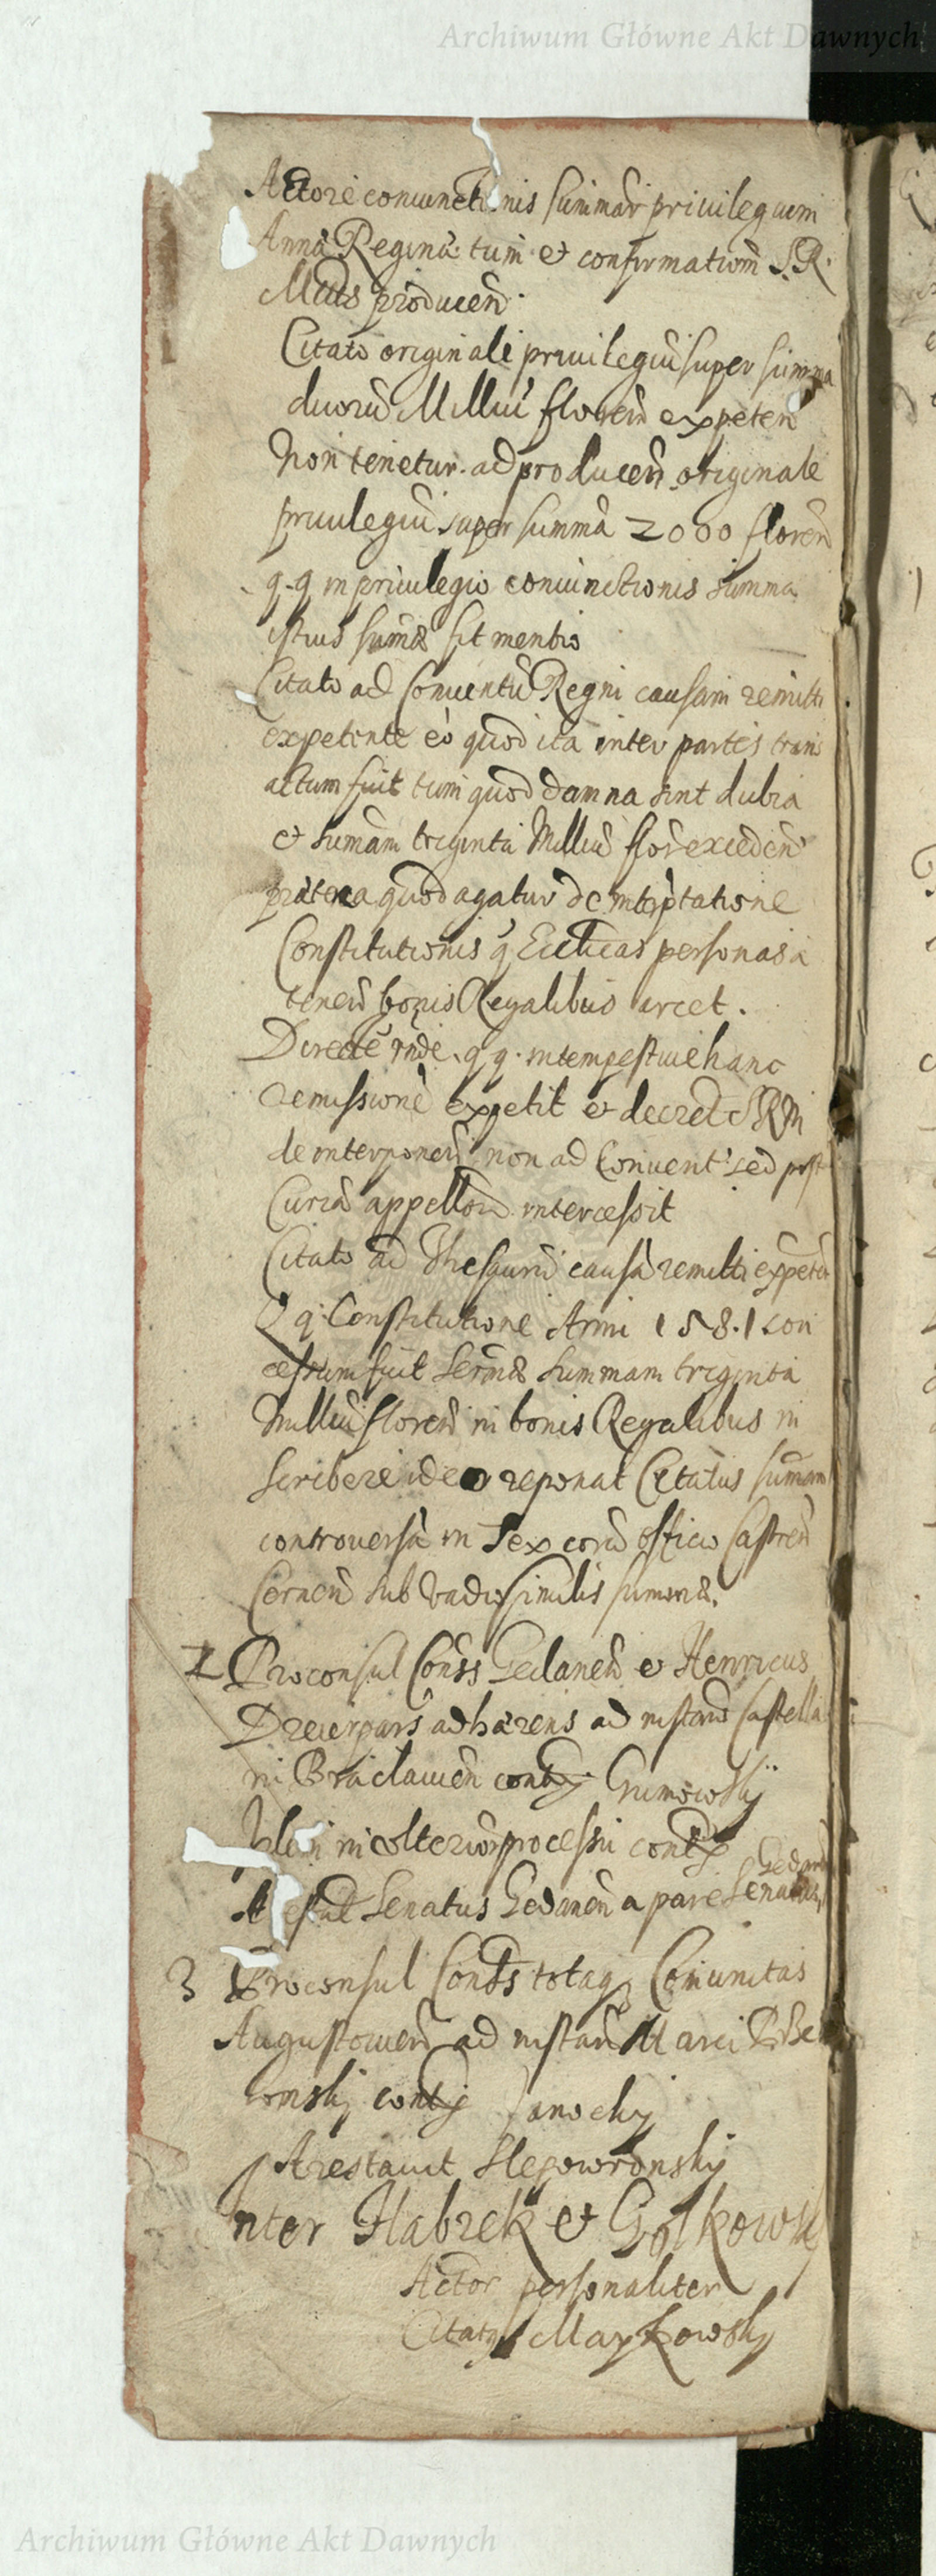 Archiwum Główne Akt Dawnych
Actore coniunctionis summar privilegium
Anna Regina tum et confirmationem S. R.
Mttis producen
Citato originale privilegiu super summa
duoru Milliu floren expeten
Non tenetur ad producen originale
privilegiu super summa 2000 floren
q. q in privilegio coniunctionis summa
istius summæ fit mentio
Citato ad Conventu Regni causam remitti
expetente eo quod ita inter partes trans
actum fuit tum quod damna sint dubia
et sumam triginta Milliu flor exceden
præterea quod agatur de interptatione
Constitutionis q Ecclticas personas a
tenen bonis Regalibus arcet.
Directe rnde. q q. intempestive hanc
remissione expetit et decret S R M
de interponen non ad Convent sed post
Curia appellon intercessit
Citato ad Thesauru causa remitti expeten
q Constitutione Anni 1581 con
cessum fuit Sermæ summam triginta
Milliu floren in bonis Regalibus in
scribere ideo reponat Citatus sumam
controversa in Sex coru officio Castren
Cernen sub vadio similis summæ.
2 Proconsul Conss Gedanen et Henricus
pars adhærens ad instan Castella
ni Braclavien Grinowskij
in processu
Senatus Gedanen a parte Senatus
Gedan
3 Proconsul Conss totaq Comunitas
Augustowien ad instan Marci
Janockij
Arestavit Slepowronskij
nter Habrek et Golkowsk
Actor personaliter
Citatus Maykowskij
Archiwum Główne Akt Dawnych